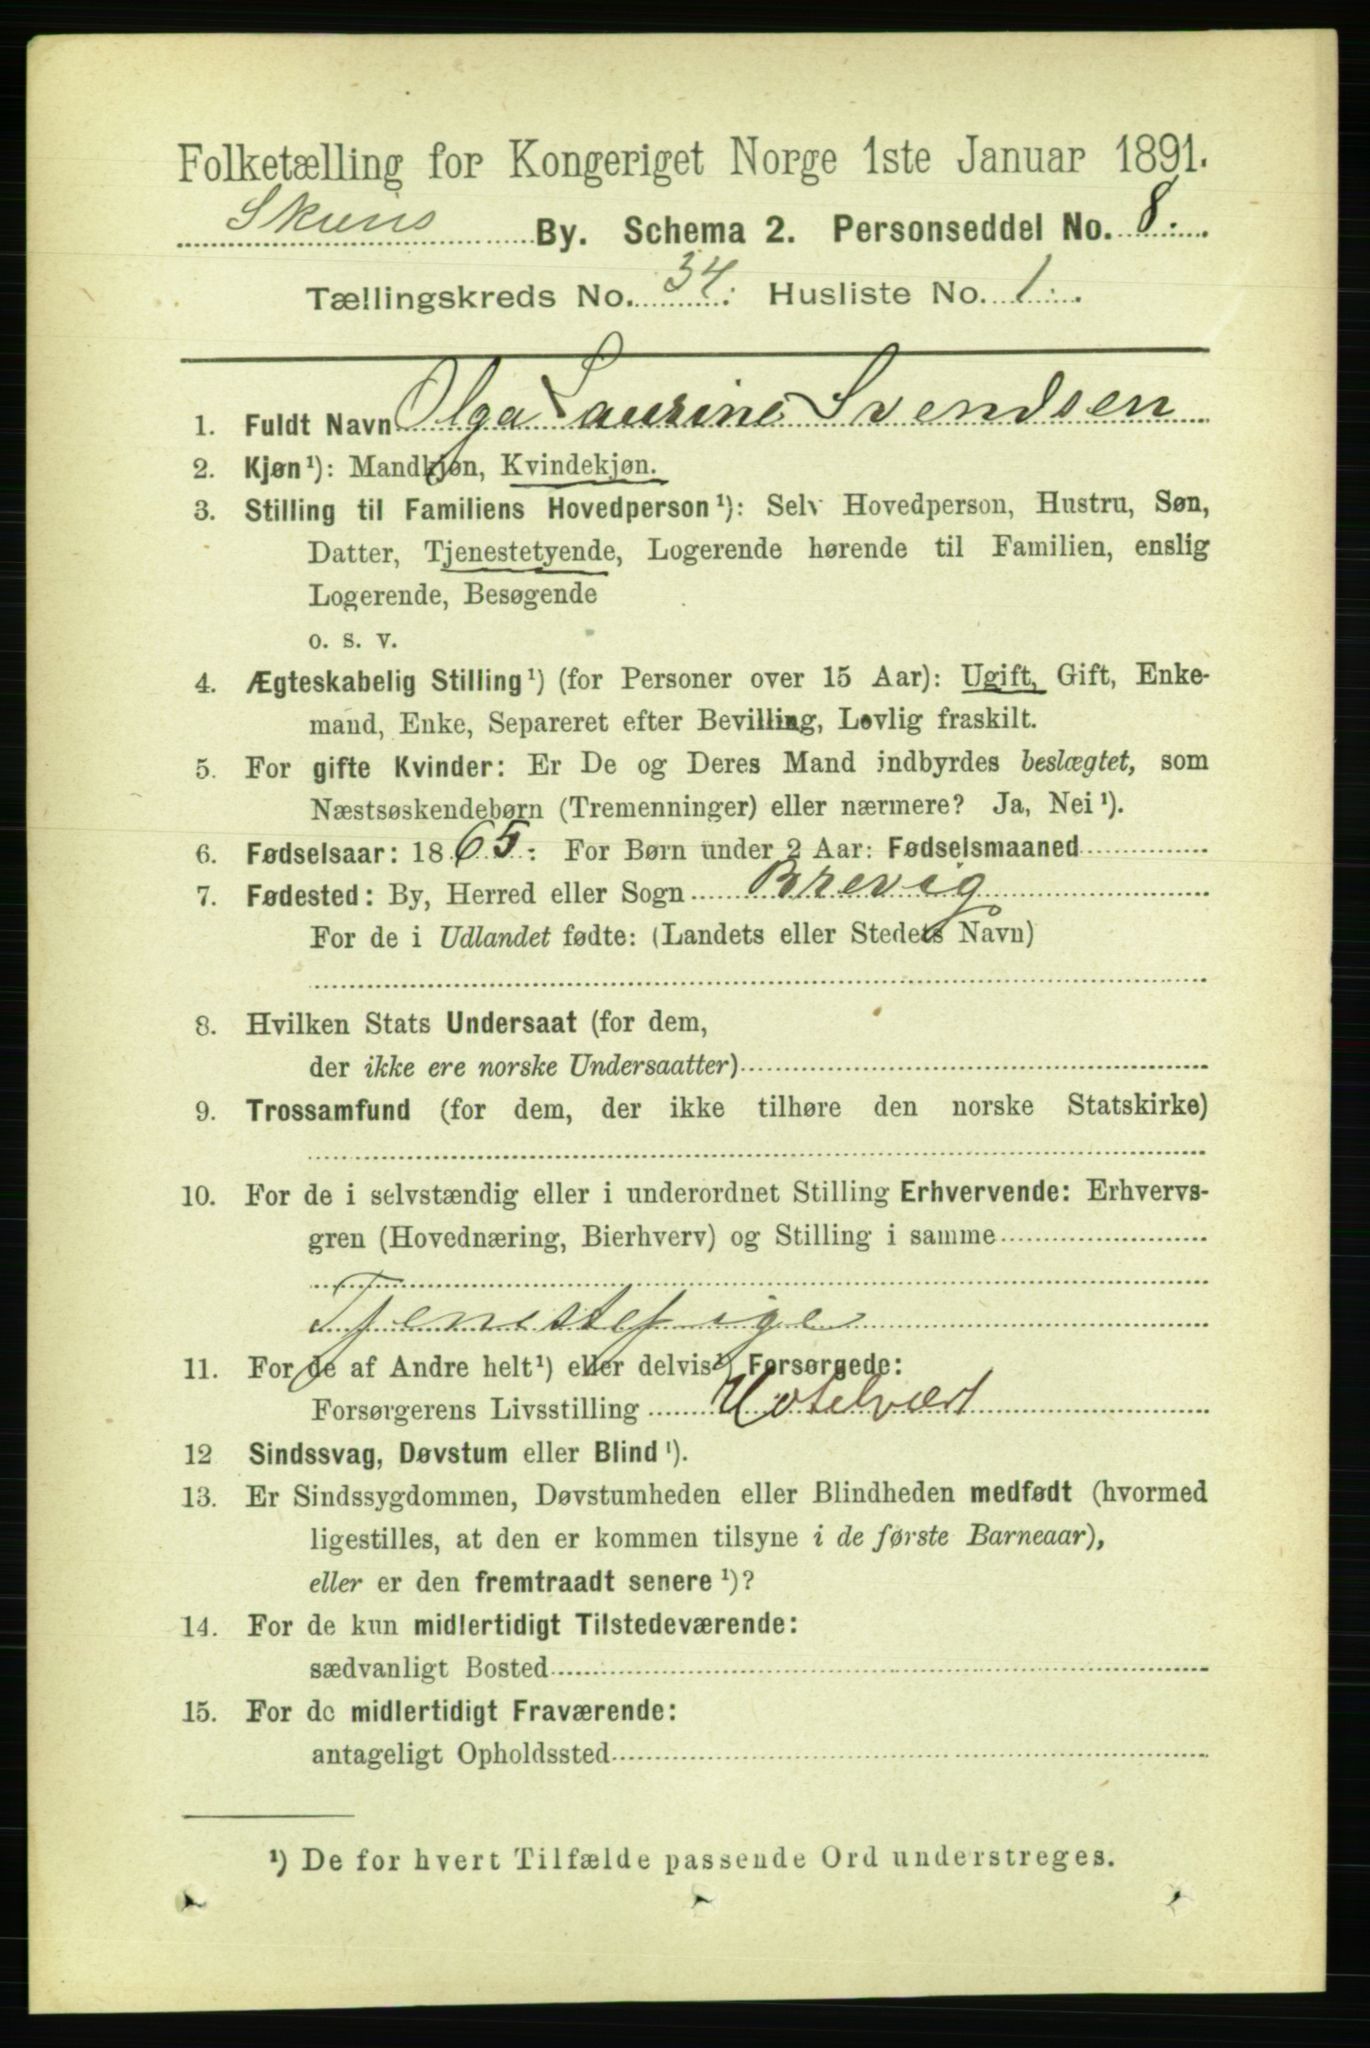 Folketælling for Kongeriget Norge 1ste Januar 1891.
Skiens By. Schema 2. Personseddel No. 8.
Tællingskreds No. 34. Husliste No. 1.
1. Fuldt Navn Olga Laurine Svendsen
2. Kjøn¹): Mandkjøn, Kvindekjøn.
3. Stilling til Familiens Hovedperson¹): Selv Hovedperson, Hustru, Søn,
Datter, Tjenestetyende, Logerende hørende til Familien, enslig
Logerende, Besøgende
o. s. v.
4. Ægteskabelig Stilling¹) (for Personer over 15 Aar): Ugift, Gift, Enke-
mand, Enke, Separeret efter Bevilling, Lovlig fraskilt.
5. For gifte Kvinder: Er De og Deres Mand indbyrdes beslægtet, som
Næstsøskendebørn (Tremenninger) eller nærmere? Ja, Nei¹).
6. Fødselsaar: 1865. For Børn under 2 Aar: Fødselsmaaned
7. Fødested: By, Herred eller Sogn Brevig
For de i Udlandet fødte: (Landets eller Stedets Navn)
8. Hvilken Stats Undersaat (for dem,
der ikke ere norske Undersaatter)
9. Trossamfund (for dem, der ikke tilhøre den norske Statskirke)
10. For de i selvstændig eller i underordnet Stilling Erhvervende: Erhvervs-
gren (Hovednæring, Bierhverv) og Stilling i samme
Tjenestepige
11. For de af Andre helt¹) eller delvis¹) Forsørgede:
Forsørgerens Livsstilling Hotelvært
12 Sindssvag, Døvstum eller Blind¹).
13. Er Sindssygdommen, Døvstumheden eller Blindheden medfødt (hvormed
ligestilles, at den er kommen tilsyne i de første Barneaar),
eller er den fremtraadt senere¹)?
14. For de kun midlertidigt Tilstedeværende:
sædvanligt Bosted
15. For de midlertidigt Fraværende:
antageligt Opholdssted
¹) De for hvert Tilfælde passende Ord understreges.